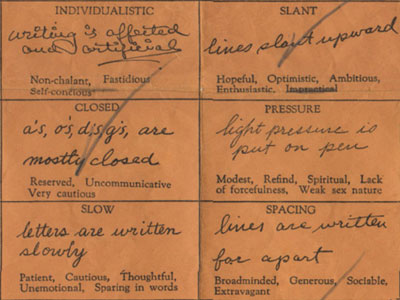 INDIVIDUALISTIC
writing is affected
and artificial
Non-chalant, Fastidious
Self-concious
SLANT
lines slant upward
Hopeful, Optimistic, Ambitious,
Enthusiastic. Impractical
CLOSED
a's, o's, d's, g's, are
mostly closed
Reserved, Uncommunicative
Very cautious
PRESSURE
light pressure is
put on pen
Modest, Refind, Spiritual, Lack
of forcefulness, Weak sex nature
SLOW
letters are written
slowly
Patient, Cautious, Thoughtful,
Unemotional, Sparing in words
SPACING
lines are written
far apart
Broadminded, Generous, Sociable,
Extravagant